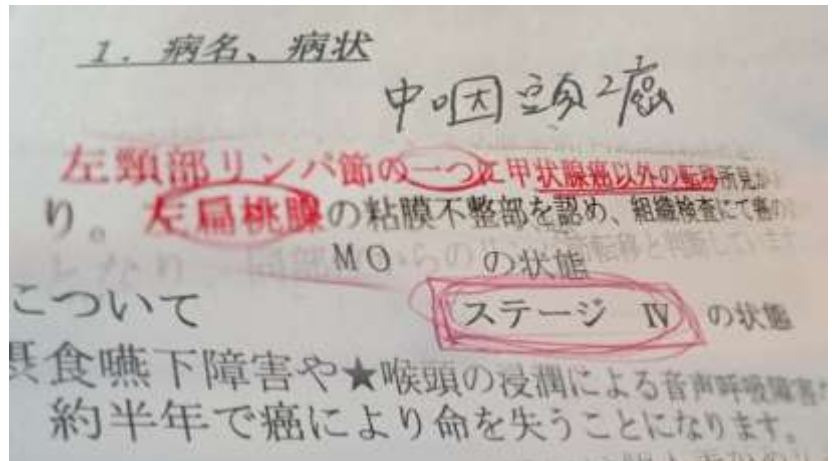 1. 病名、病状
中咽頭癌
左頸部リンパ節の一つに甲状腺癌以外の転移所見が
り。左扁桃腺の粘膜不整部を認め、組織検査にて癌の
となり、同部 からのリンパ節転移と判断しています
M0 の状態
について
ステージ Ⅳ の状態
摂食嚥下障害や★喉頭の浸潤による音声呼吸障害
約半年で癌により命を失うことになります。